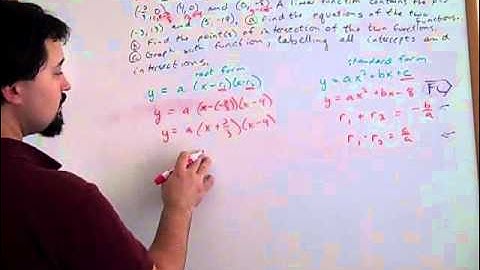 (4, 0) and A linear function contains the
and (3, -18). ⓐ Find the equations of the two functions.
ⓑ Find the points of intersection of the two functions.
ⓒ Graph both function, labelling all intercepts and
intersections.
root form
standard form
y = a (x-r₁)(x-r₂)
y = ax² + bx + c
y = a (x-(-⅔))(x-4)
y = ax² + bx - 8
F
y = a (x + ⅔)(x-4)
r₁ + r₂ = -b/a
r₁ · r₂ = c/a